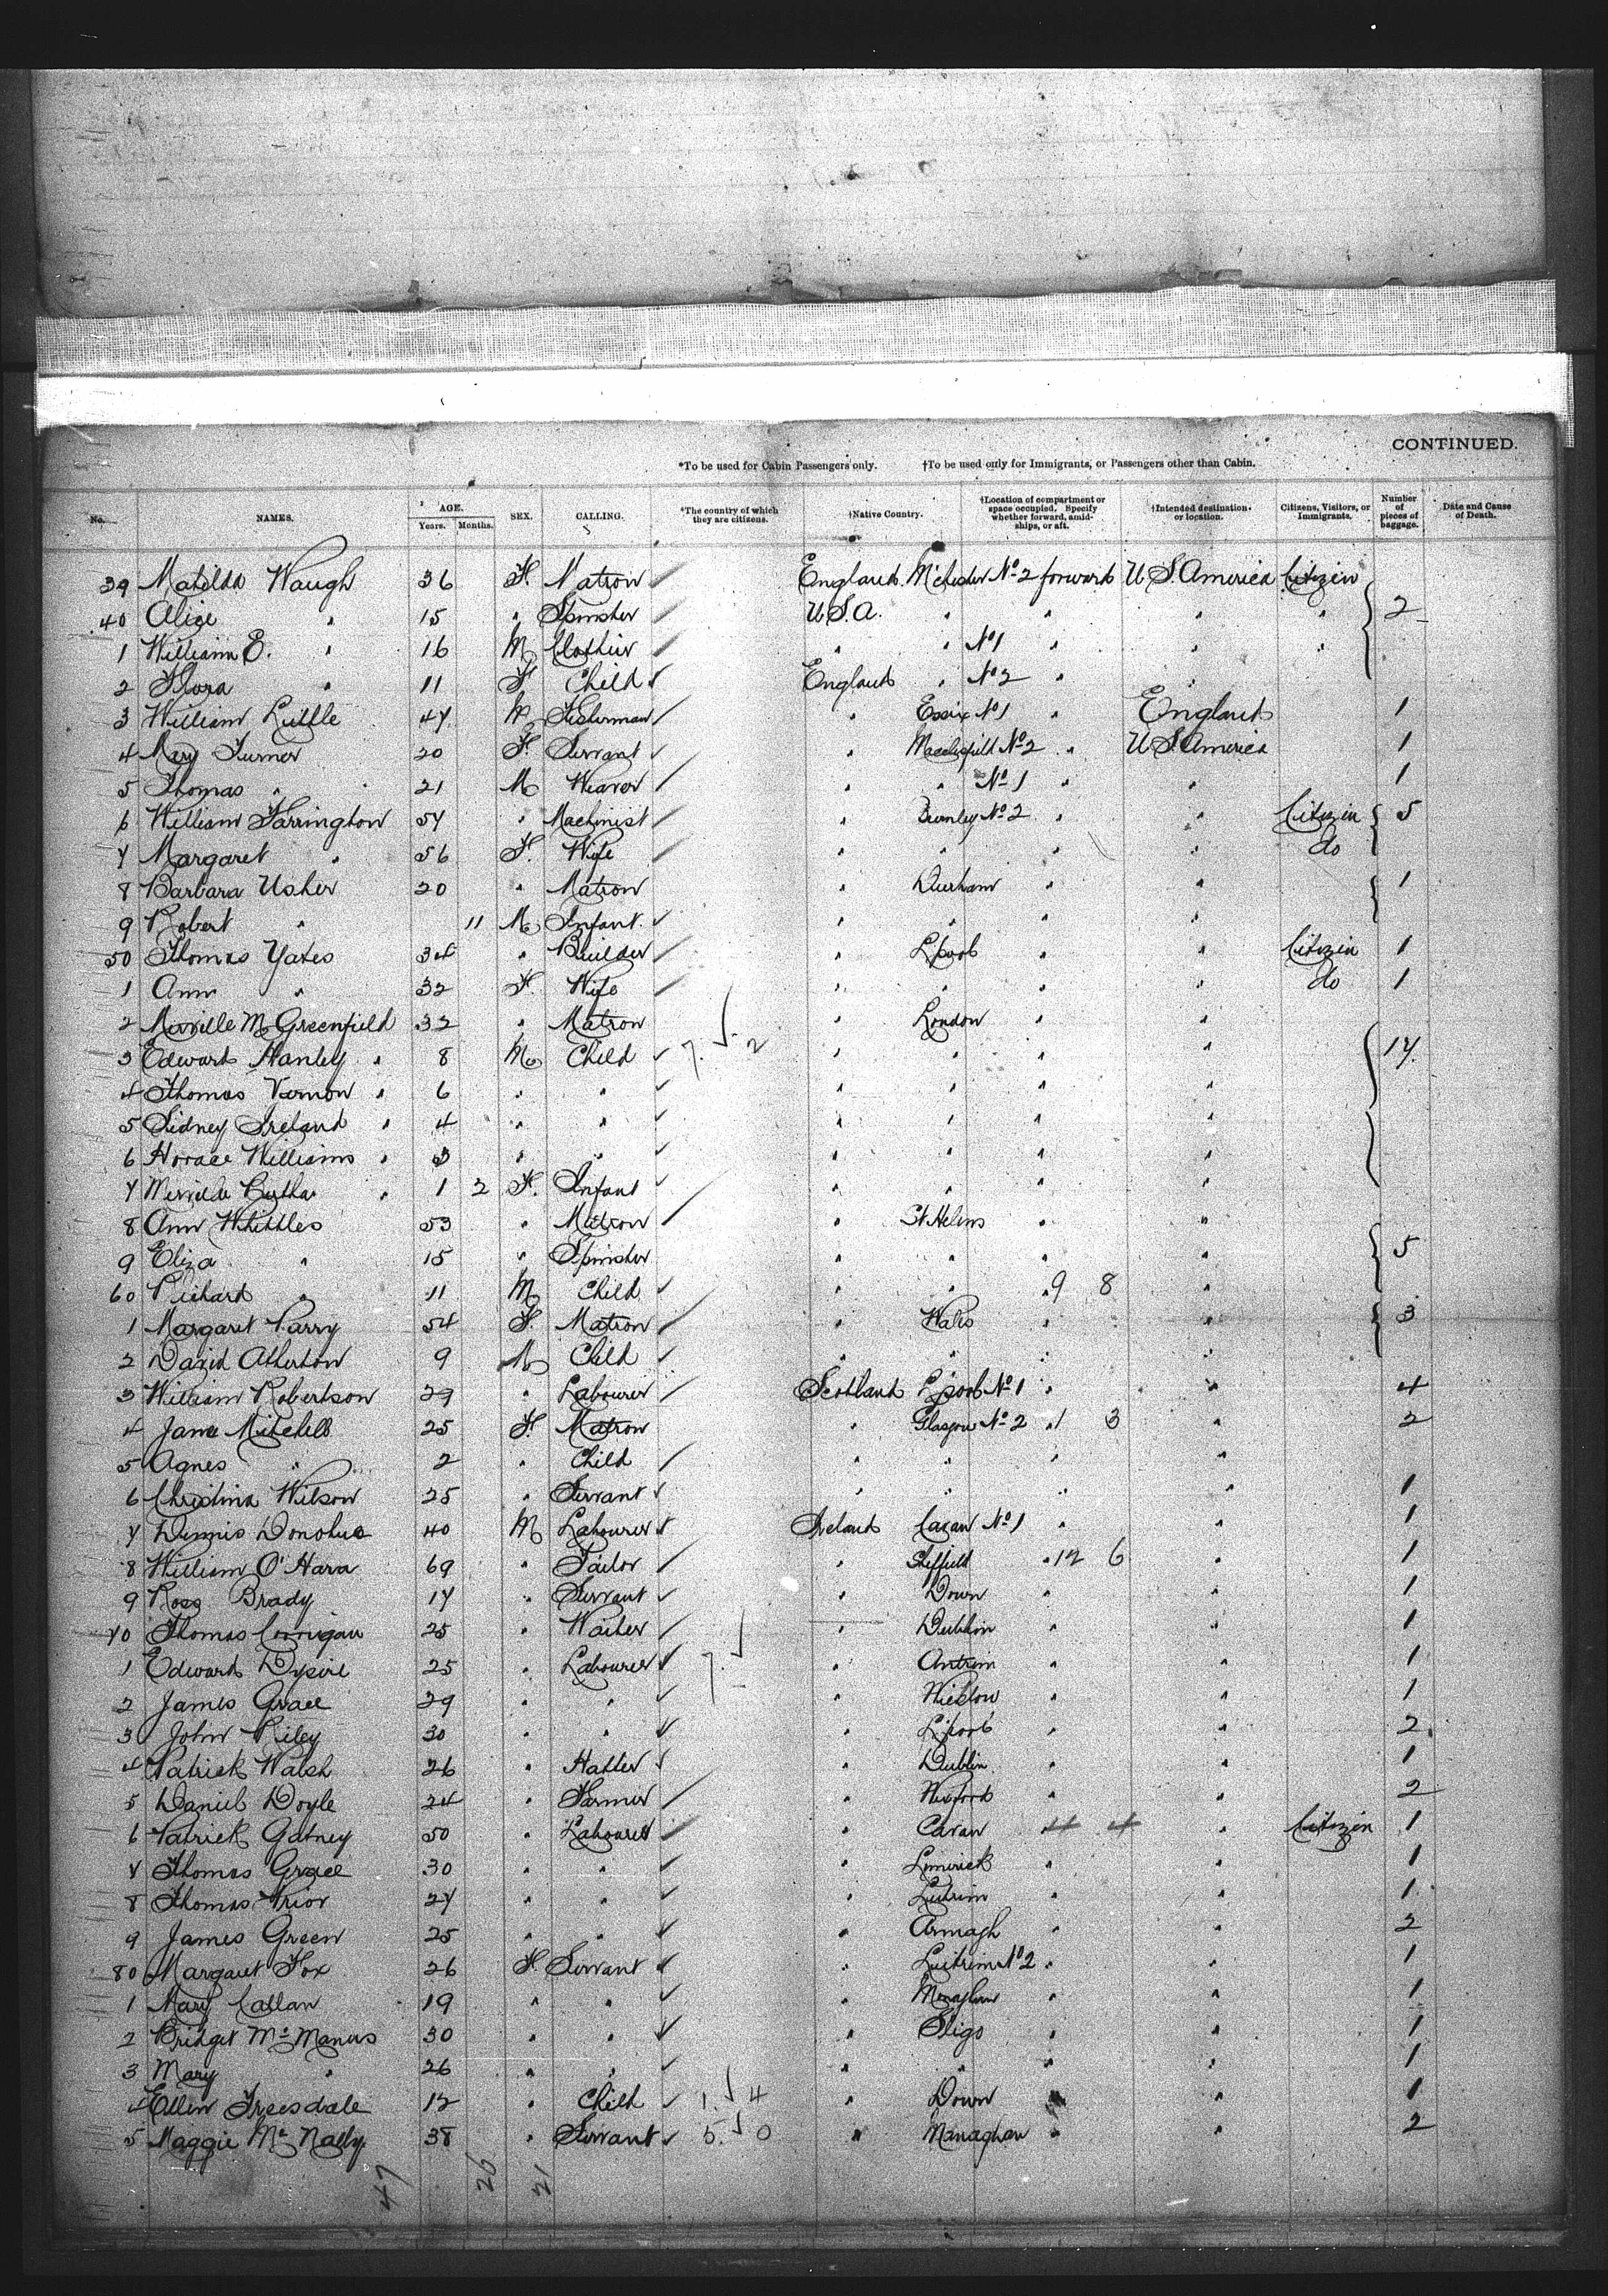 CONTINUED.
*To be used for Cabin Passengers only. †To be used only for Immigrants, or Passengers other than Cabin.
No. NAMES. AGE. Years. Months. SEX. CALLING. *The country of which they are citizens. †Native Country. †Location of compartment or space occupied. Specify whether forward, amidships, or aft. †Intended destination or location. Citizens, Visitors, or Immigrants. Number of pieces of baggage. Date and Cause of Death.
39 Matilda Waugh 36 F. Matron England M'chester No 2 forward U S. America Citizen
40 Alice " 15 " Spinster U S. A. " " " " 2
1 William E. " 16 M Clothier " " No 1 " " "
2 Flora " 11 F Child England " No 2 " "
3 William Little 47 M Fisherman " Essix No 1 " England 1
4 Mary Turner 20 F. Servant " Macclesfield No 2 " U S. America 1
5 Thomas " 21 M Weaver " " No 1 " " 1
6 William Farrington 54 " Machinist " Burnley No 2 " " Citizen 5
7 Margaret " 56 F. Wife " " " " do
8 Barbara Usher 20 " Matron " Durham " " 1
9 Robert " 11 M Infant " " " "
50 Thomas Yates 34 " Builder " L'pool " " Citizen 1
1 Ann " 32 F. Wife " " " " do 1
2 M Greenfield 32 " Matron " London " "
3 Edward Hanley " 8 M Child 7. 2 " " " " 17
4 Thomas Vernon " 6 " " " " " "
5 Sidney Ireland " 4 " " " " " "
6 Horace Williams " 3 " " " " " "
7 " 1 2 F. Infant " " " "
8 Ann Whittles 53 " Matron " St Helens " "
9 Eliza " 15 " Spinster " " " " 5
60 Richard " 11 M Child " " " 9 8 "
1 Margaret Parry 54 F. Matron " Wales " " 3
2 David Atherton 9 M Child " " " "
3 William Robertson 29 " Labourer Scotland L'pool No 1 " " 4
4 Jane Mitchell 25 F. Matron " Glasgow No 2 " 1 3 " 2
5 Agnes " 2 " Child " " " "
6 Christina Wilson 25 " Servant " " " " 1
7 Dennis Donohue 40 M Labourer Ireland Cavan No 1 " " 1
8 William O'Hara 69 " Tailor " Sheffield " 12 6 " 1
9 Ross Brady 17 " Servant " Down " " 1
70 Thomas Corrigan 25 " Waiter " Dublin " " 1
1 Edward 25 " Labourer 7. 1 " Antrim " " 1
2 James Grace 29 " " " Wicklow " " 1
3 John Riley 30 " " " L'pool " " 2
4 Patrick Walsh 26 " Hatter " Dublin " " 1
5 Daniel Doyle 24 " Farmer " Wexford " " 2
6 Patrick Gatney 50 " Labourer " Cavan 4 4 " Citizen 1
7 Thomas Grace 30 " " " Limerick " " 1
8 Thomas Prior 27 " " " Leitrim " " 1
9 James Green 25 " " " Armagh " " 2
80 Margaret Fox 26 F. Servant " Leitrim No 2 " " 1
1 Mary Callan 19 " " " Monaghan " " 1
2 Bridget McManus 30 " " " Sligo " " 1
3 Mary " 26 " " " " " " 1
4 Ellen Treesdale 12 " Child 1. 4 " Down " " 1
5 Maggie McNally 38 " Servant 5. 0 " Monaghan " " 2
47 26 21